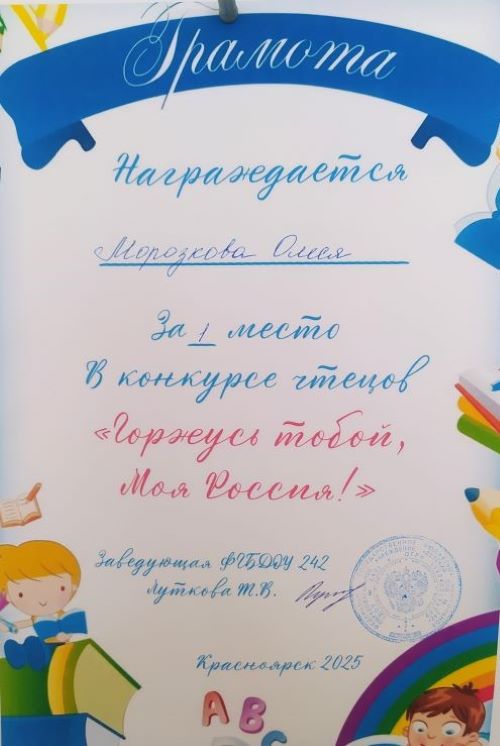 Грамота
Награждается
Морозкова Олеся
За 1 место
В конкурсе чтецов
«Горжусь тобой,
Моя Россия!»
Заведующая ФГБДОУ 242
Луткова Т.В.
Красноярск 2025
АВ